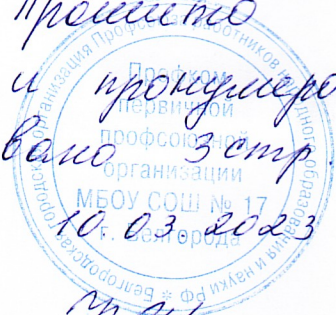 Прошито
и пронумеро
вано 3 стр.
10.03.2023
Профком
первичной
профсоюзной
организации
МБОУ СОШ № 17
г. Белгорода
Белгородская городская организация Профсоюза работников народного образования и науки РФ *